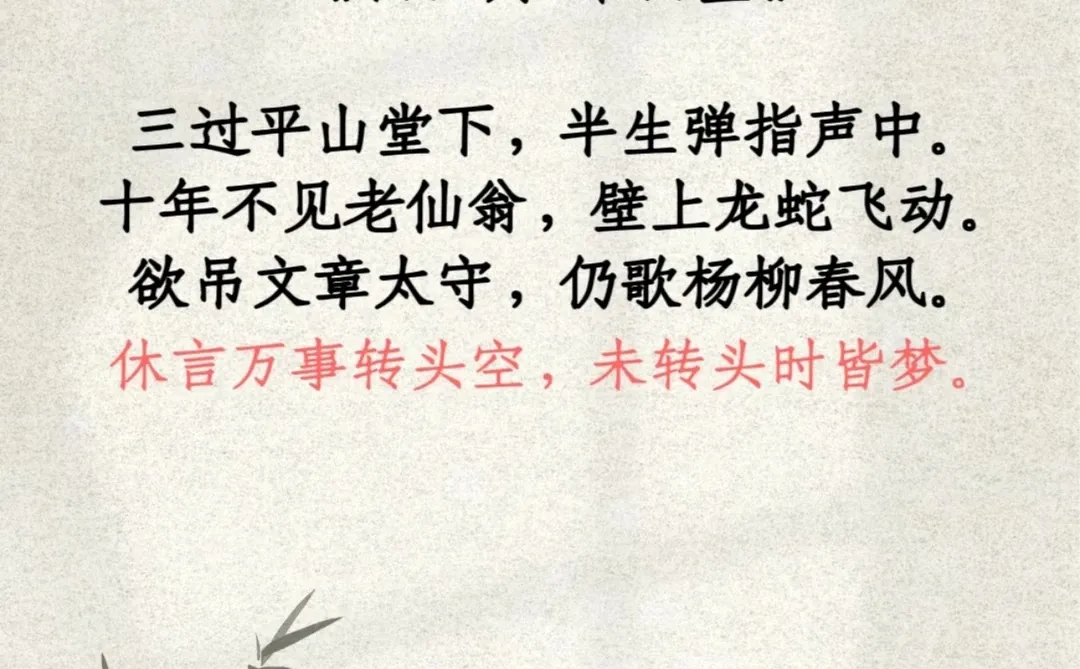 三过平山堂下，半生弹指声中。
十年不见老仙翁，壁上龙蛇飞动。
欲吊文章太守，仍歌杨柳春风。
休言万事转头空，未转头时皆梦。